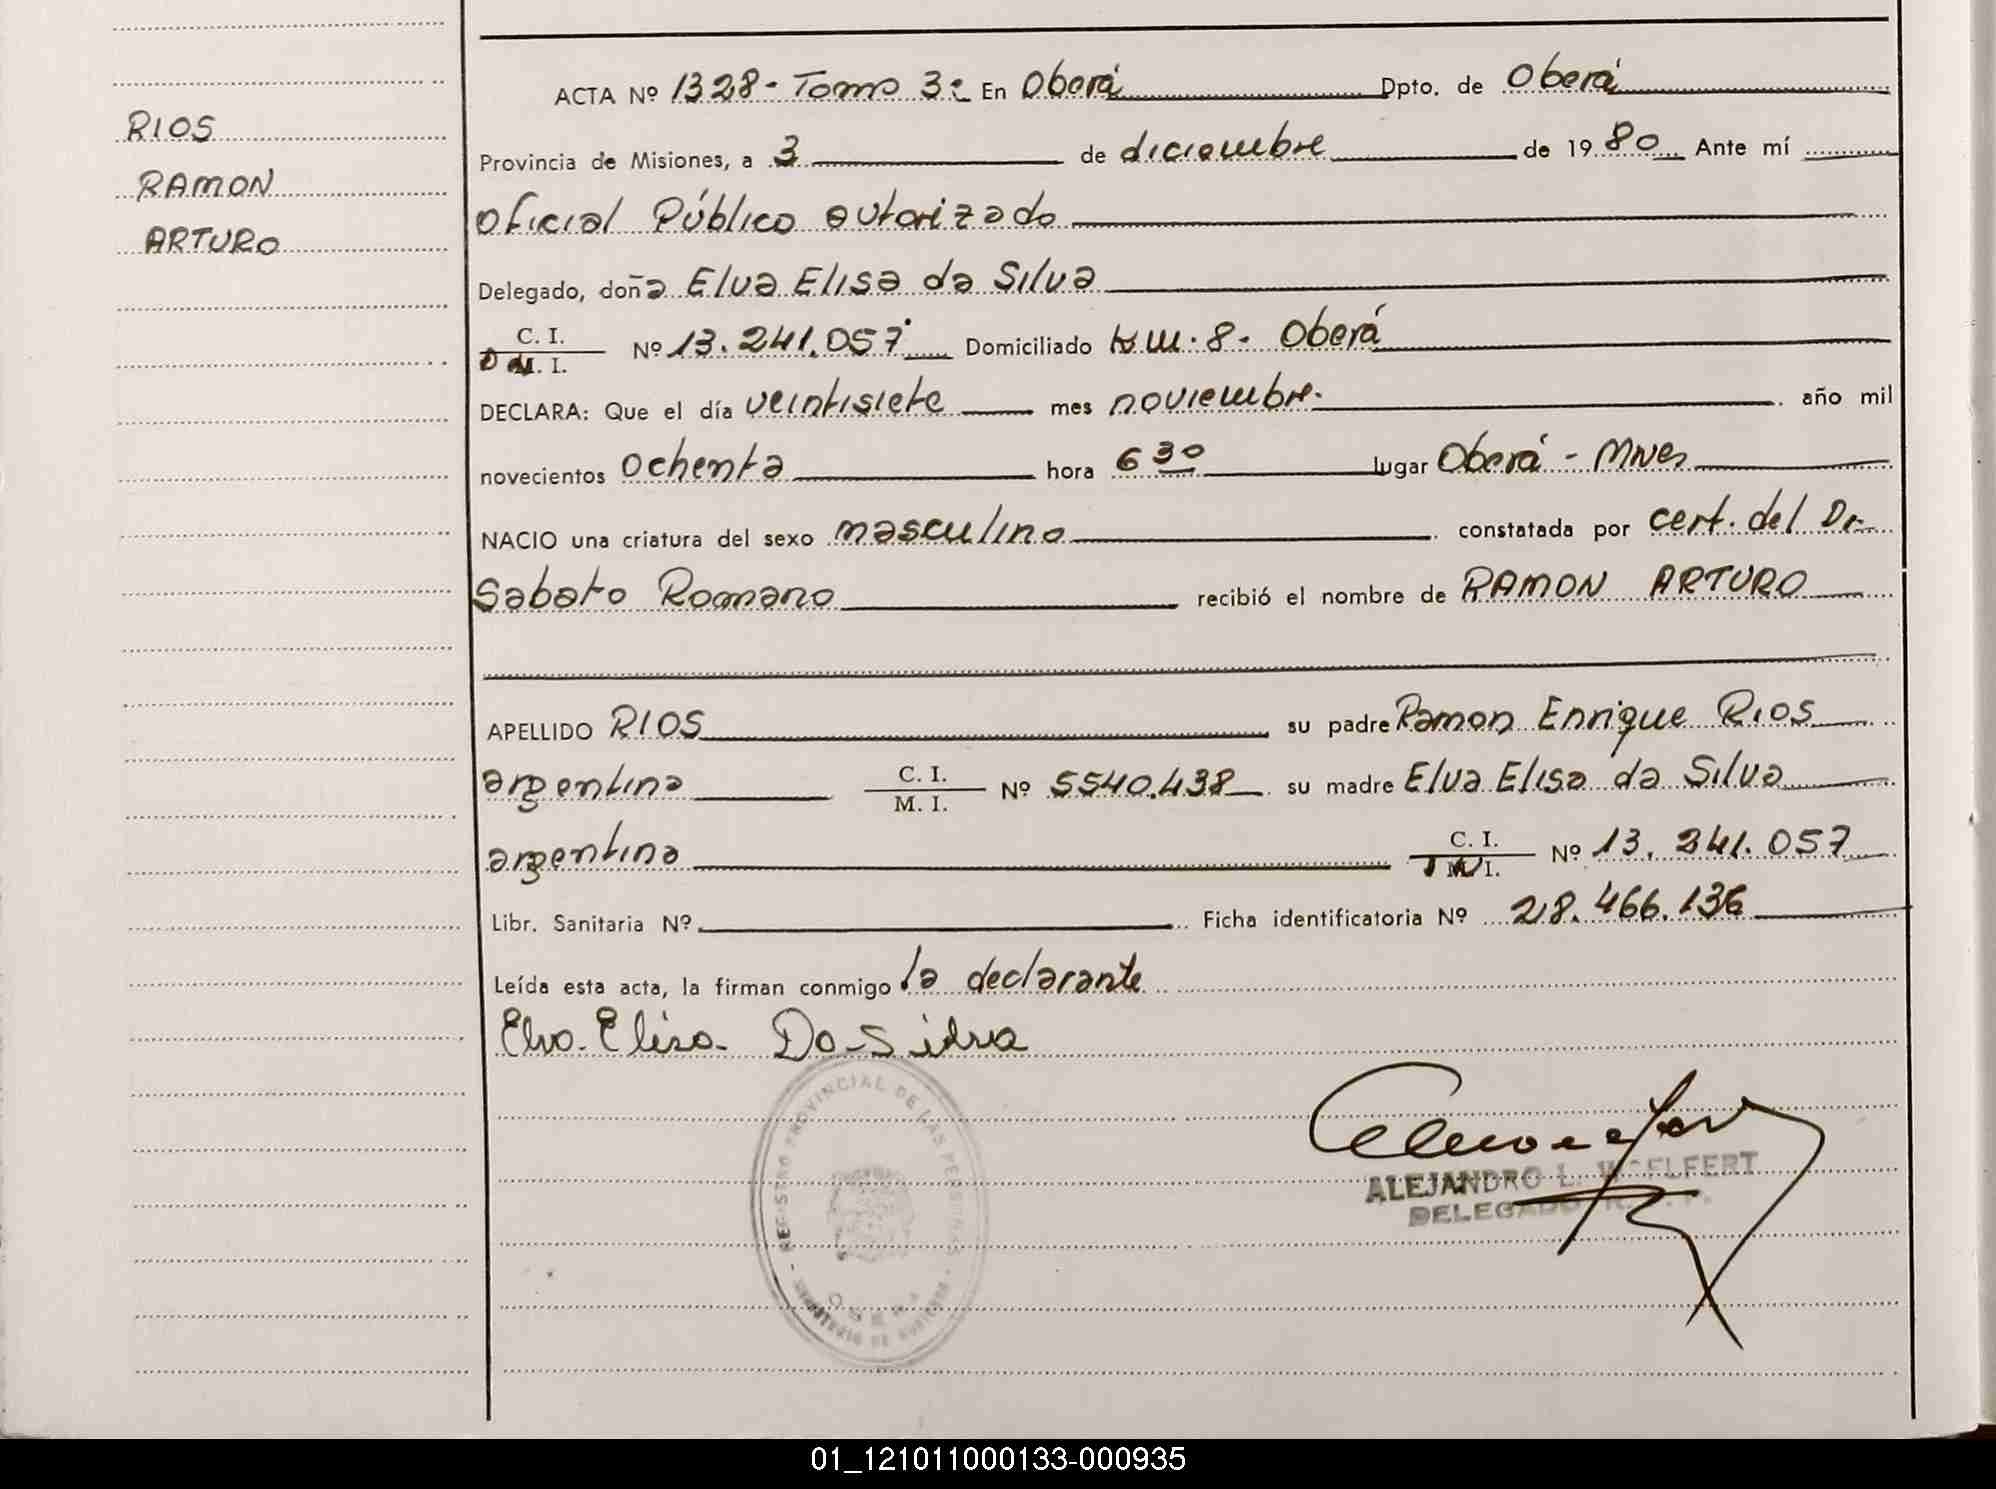 RIOS
RAMON
ARTURO
ACTA Nº 1328- Tomo 3º En Oberá Dpto. de Oberá
Provincia de Misiones, a 3 de diciembre de 1980 Ante mí
Oficial Público autorizado
Delegado, doña Elva Elisa da Silva
C. I.
M. I. Nº 13.241.057 Domiciliado km. 8- Oberá
DECLARA: Que el día veintisiete mes noviembre. año mil
novecientos ochenta hora 6 30 lugar Oberá - Mnes
NACIO una criatura del sexo masculino constatada por cert. del Dr.
Sabato Romano recibió el nombre de RAMON ARTURO
APELLIDO RIOS su padre Ramon Enrique Rios
argentina C. I. M. I. Nº 5540.438 su madre Elva Elisa da Silva
argentina C. I. M. I. Nº 13.241.057
Libr. Sanitaria Nº Ficha identificatoria Nº 28.466.136
Leída esta acta, la firman conmigo la declarante
Elva Elisa Da Silva
REGISTRO PROVINCIAL DE LAS PERSONAS
ALEJANDRO L. WOELFERT
DELEGADO
01_121011000133-000935